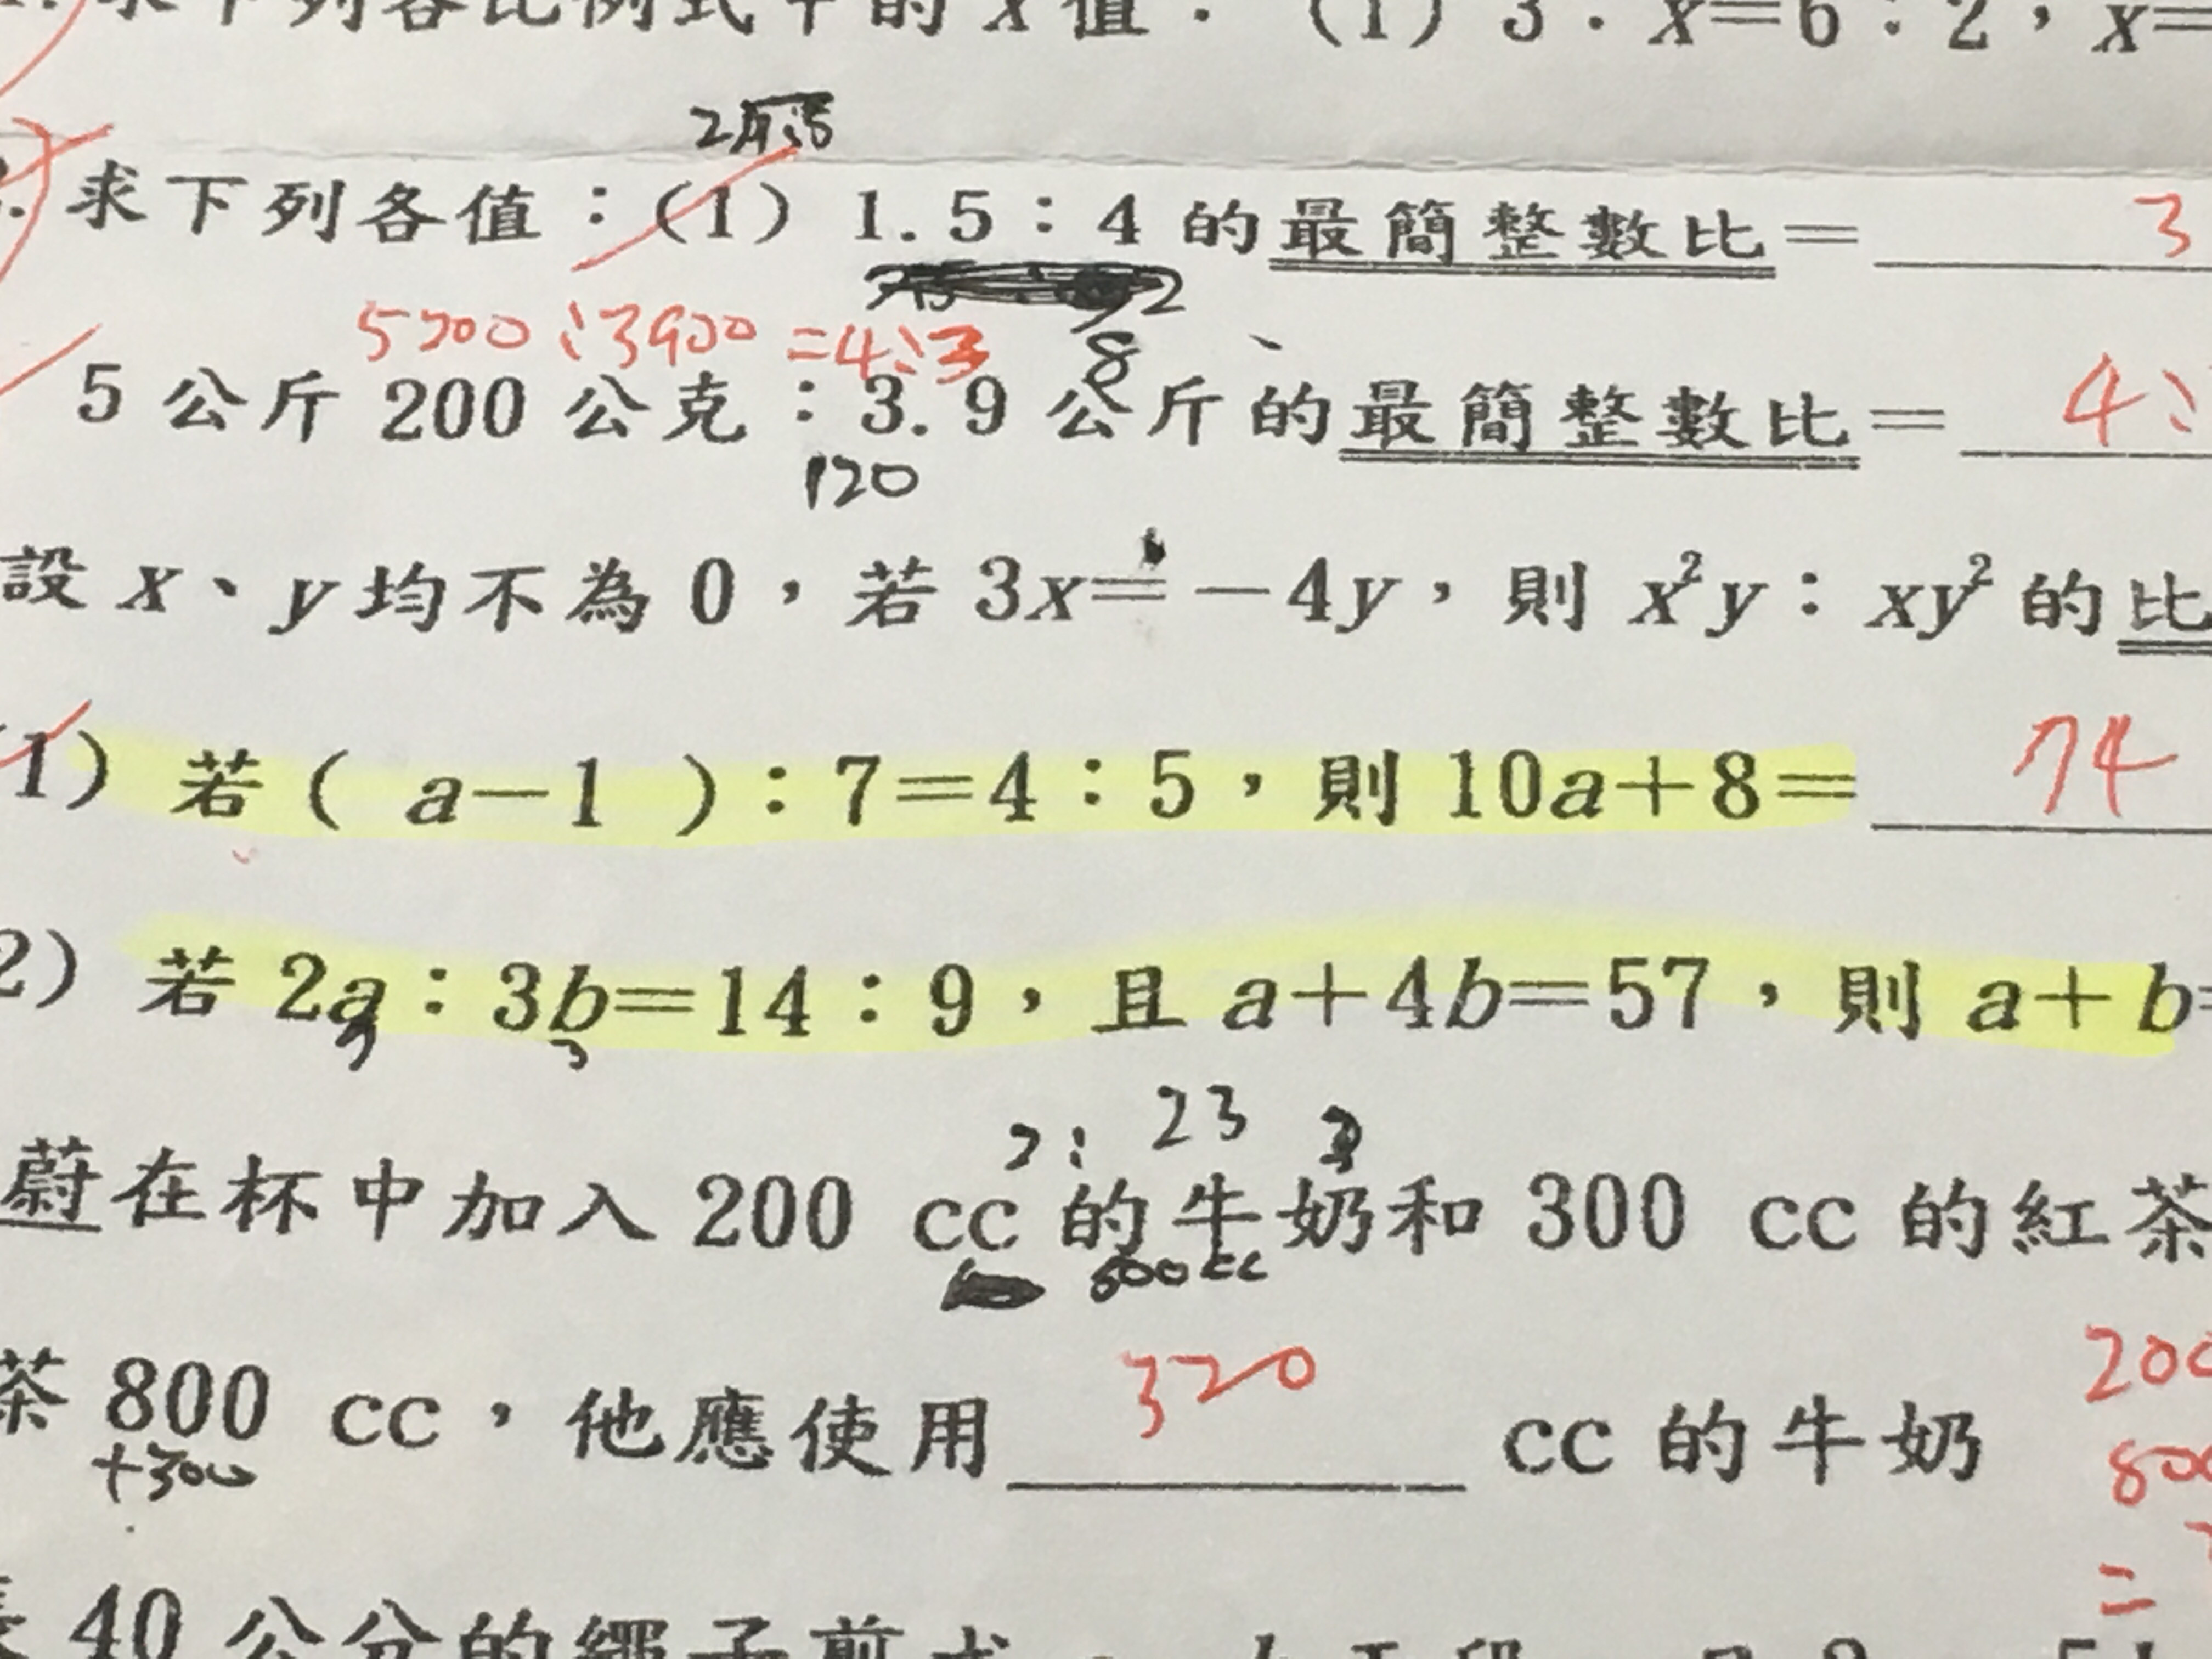 求下列各比例式中的 x 值：(1) 3：x=6：2，x=
求下列各值：(1) 1.5：4 的最簡整數比= 3
5200：3900 =4：3 8
5 公斤 200 公克：3.9 公斤的最簡整數比= 4：
120
設 x、y 均不為 0，若 3x=-4y，則 x²y：xy² 的比
(1) 若( a-1 )：7=4：5，則 10a+8= 74
2) 若 2a：3b=14：9，且 a+4b=57，則 a+b=
7 3
2： 23 3
蔚在杯中加入 200 cc 的牛奶和 300 cc 的紅茶
800cc
茶 800 cc，他應使用 320 cc 的牛奶
+300
200
800
=
40 公分的繩子剪成